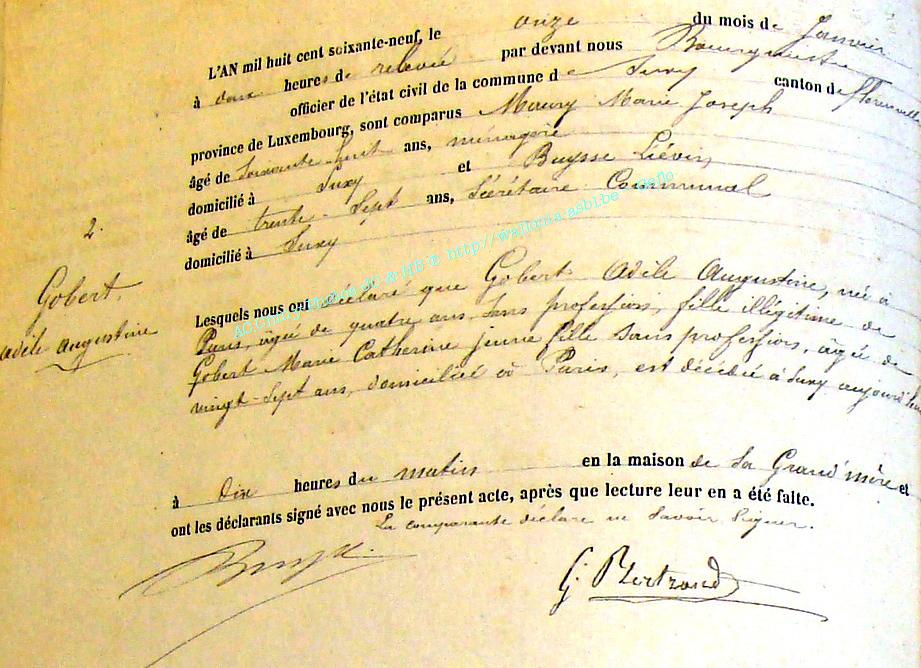 L'AN mil huit cent soixante-neuf, le onze du mois de Janvier
à deux heures de relevée par devant nous Bourgmestre
officier de l'état civil de la commune de Suxy canton de Florenville
province de Luxembourg, sont comparus Maury Marie Joseph
âgé de Soixante huit ans, ménagère
domicilié à Suxy et Buysse Liévin
âgé de trente-Sept ans, Sécrétaire Communal
domicilié à Suxy
2.
Gobert.
Adèle Augustine
Lesquels nous ont déclaré que Gobert Adèle Augustine, née à
Paris, agée de quatre ans, sans profession, fille illégitime de
Gobert Marie Catherine jeune fille sans profession, âgée de
vingt-Sept ans, domiciliée à Paris, est décédée à Suxy aujourd'hui
à dix heures du matin en la maison de sa Grand'mère et
ont les déclarants signé avec nous le présent acte, après que lecture leur en a été faite.
La comparante déclare ne savoir Signer.
G. Bertrand
http://wallonia.asbl.be